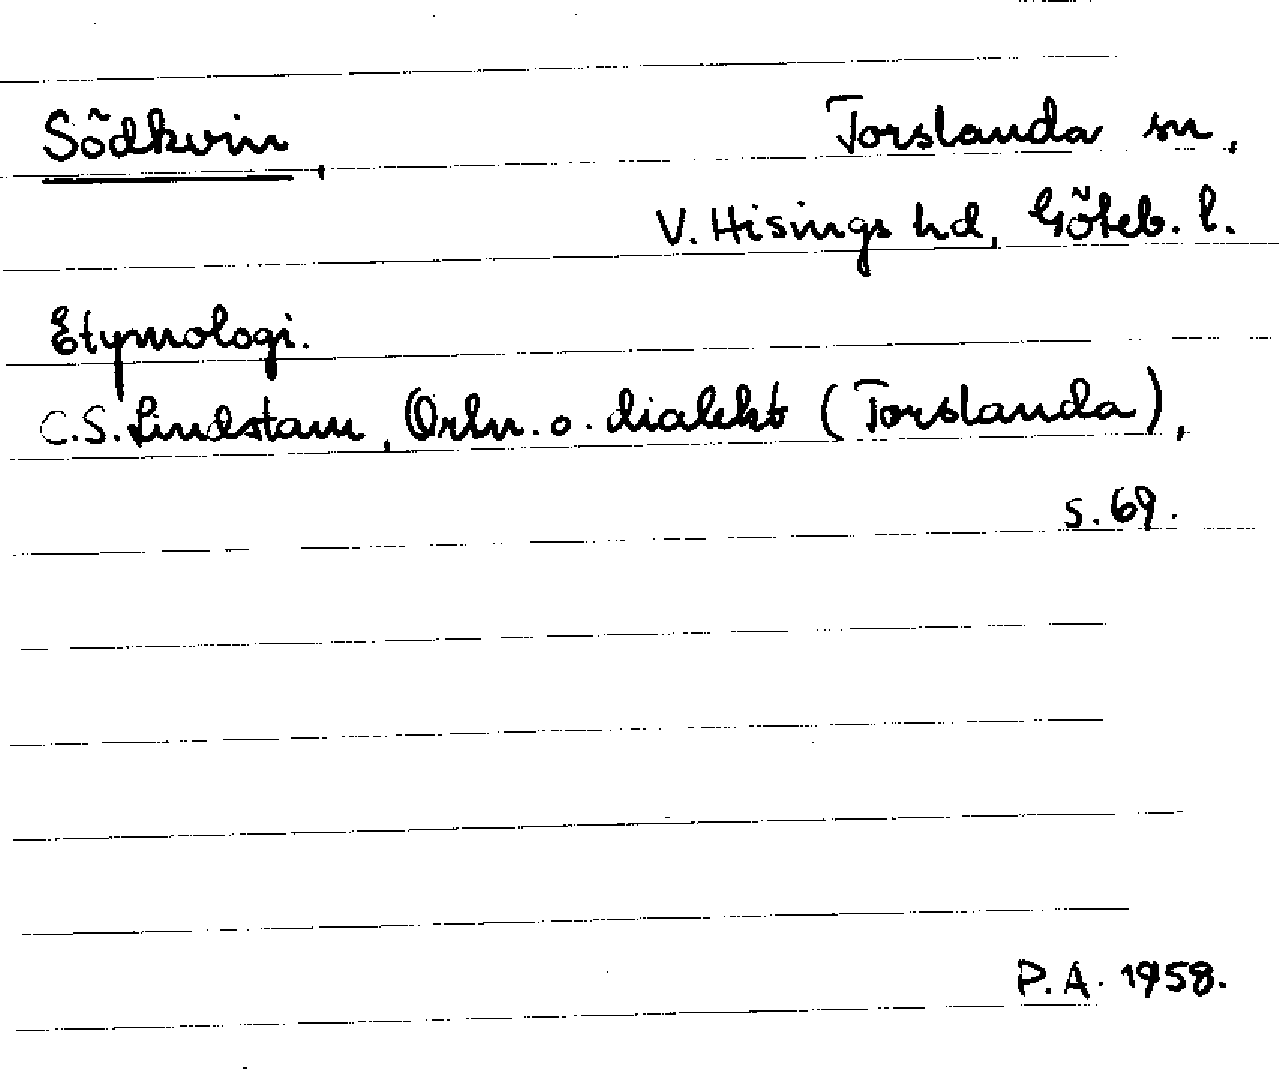 Södkvin,
Torslanda sn,
V. Hisings hd, Göteb. l.
Etymologi.
C.S. Lindstam, Ortn. o. dialekt (Torslanda),
s. 69.
P.A. 1958.